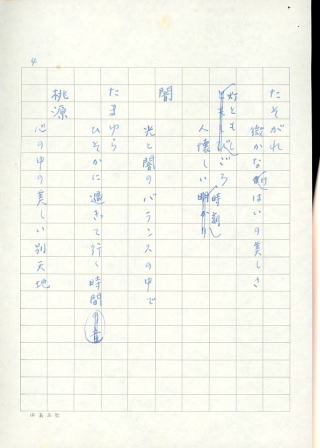 たそがれ
微かな気はいの美しさ
灯ともしごろ
人懐しい時刻
闇
光と闇のバランスの中で
たまゆら
ひそかに過ぎて行く時間の音
桃源
心の中の美しい別天地
4